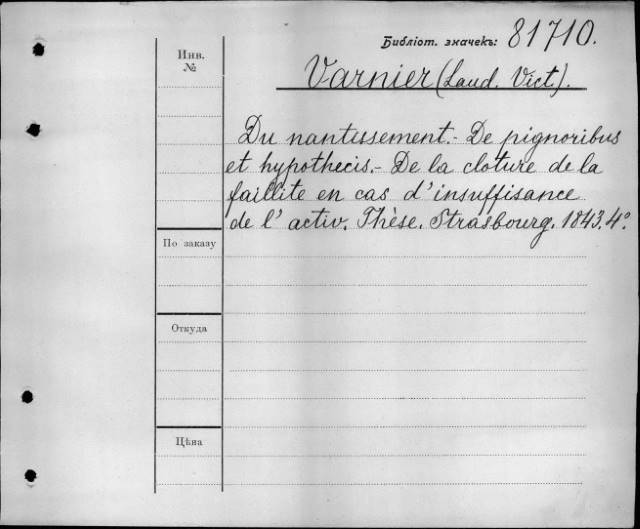 Библіот. значекъ: 81710.
Инв.
№
Varnier (Laud. Vict.).
Du nantissement. - De pignoribus
et hypothecis. - De la cloture de la
faillite en cas d'insuffisance
de l'activ. Thèse. Strasbourg. 1843. 4°.
По заказу
Откуда
Цѣна